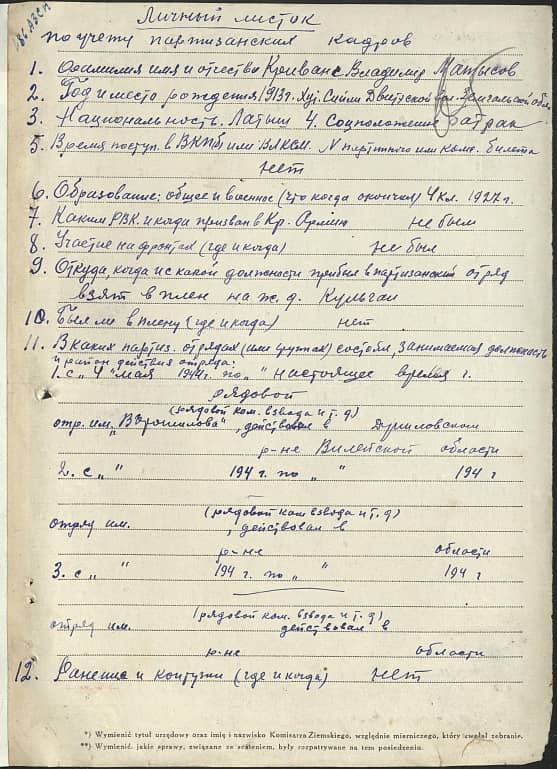 Личный листок
по учету партизанских кадров
1. Фамилия имя и отчество Криванс Владимир Матисов
2. Год и место рождения 1913 г. Хут.
3. Национальность. Латыш 4. Соцположение батрак
5 Время поступ. в ВКП(б) или ВЛКСМ. N партийного или комс. билета
нет
6. Образование: общее и военное (что когда окончил) 4 кл. 1927 г.
7. Каким РВК и когда призван в Кр. Армию не был
8. Участие на фронтах (где и когда) не был
9. Откуда, когда и с какой должности прибыл в партизанский отряд
взят в плен на ж. д.
10. Был ли в плену (где и когда) нет
11. В каких партиз. отрядах (или группах) состоял, занимаемая должность
и район действия отряда.
1. с „4" мая 1944 г. по „ " настоящее время г.
рядовой
(рядовой ком. взвода и т. д)
отр. им. „Ворошилова", действовал в
р-не Вилейской области
2. с „ " 194 г. по „ " 194 г
(рядовой ком взвода и т. д)
отряд им. , действовал в
р-не области
3. с „ " 194 г. по „ " 194 г
(рядовой ком. взвода и т. д)
отряд им. действовал в
р-не области
12. Ранение и контузии (где и когда) нет
*) Wymienić tytuł urzędowy oraz imię i nazwisko Komisarza Ziemskiego, względnie mierniczego, który zwołał zebranie.
**) Wymienić, jakie sprawy, związane ze scaleniem, były rozpatrywane na tem posiedzeniu.